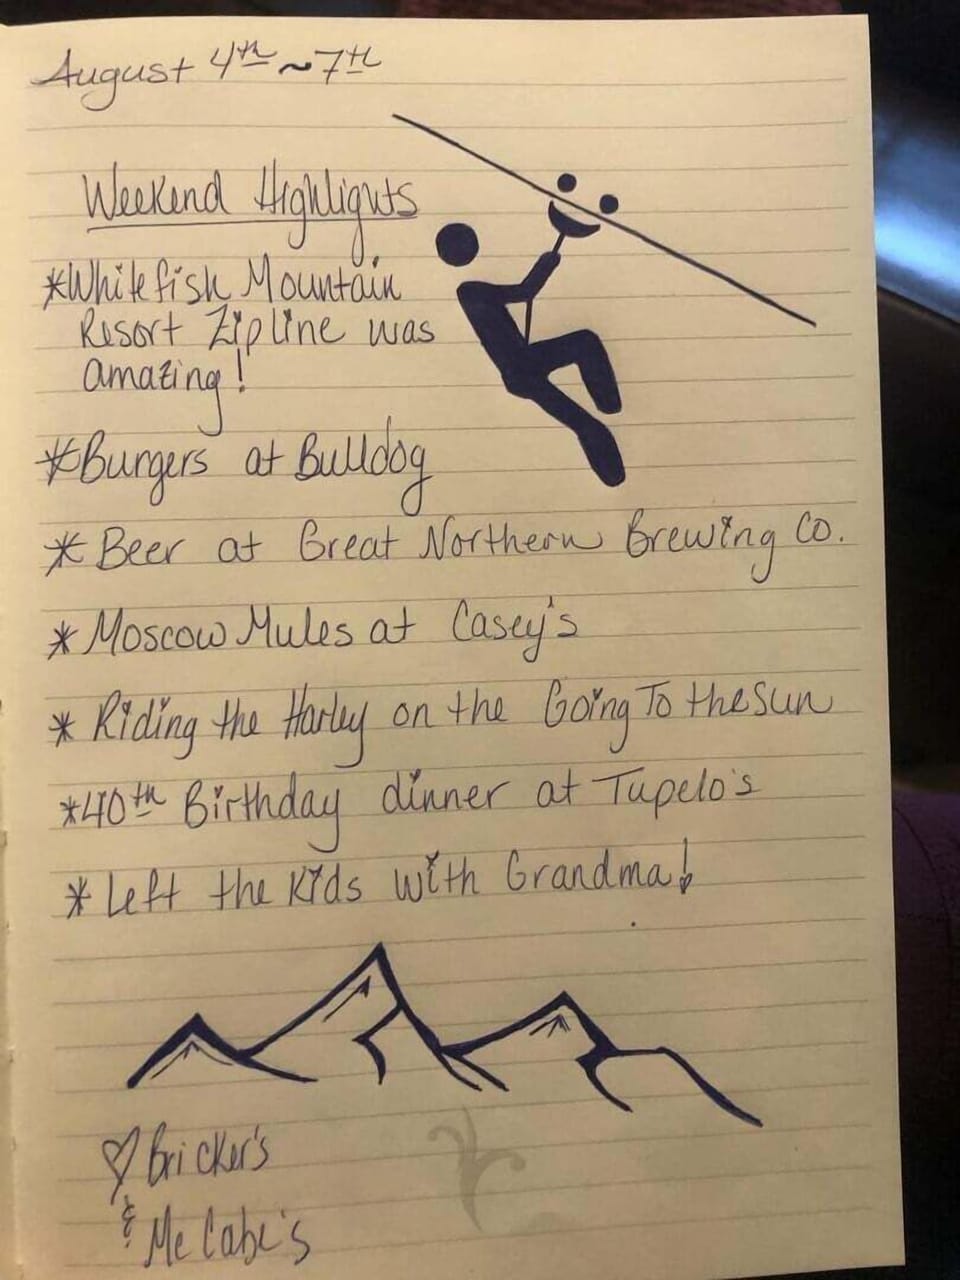 August 4th ~ 7th
Weekend Highlights
*Whitefish Mountain
Resort Zipline was
amazing!
*Burgers at Bulldog
* Beer at Great Northern Brewing Co.
* Moscow Mules at Casey's
* Riding the Harley on the Going To the Sun
*40th Birthday dinner at Tupelo's
* Left the Kids with Grandma!
♡ Bricker's
& McCabe's